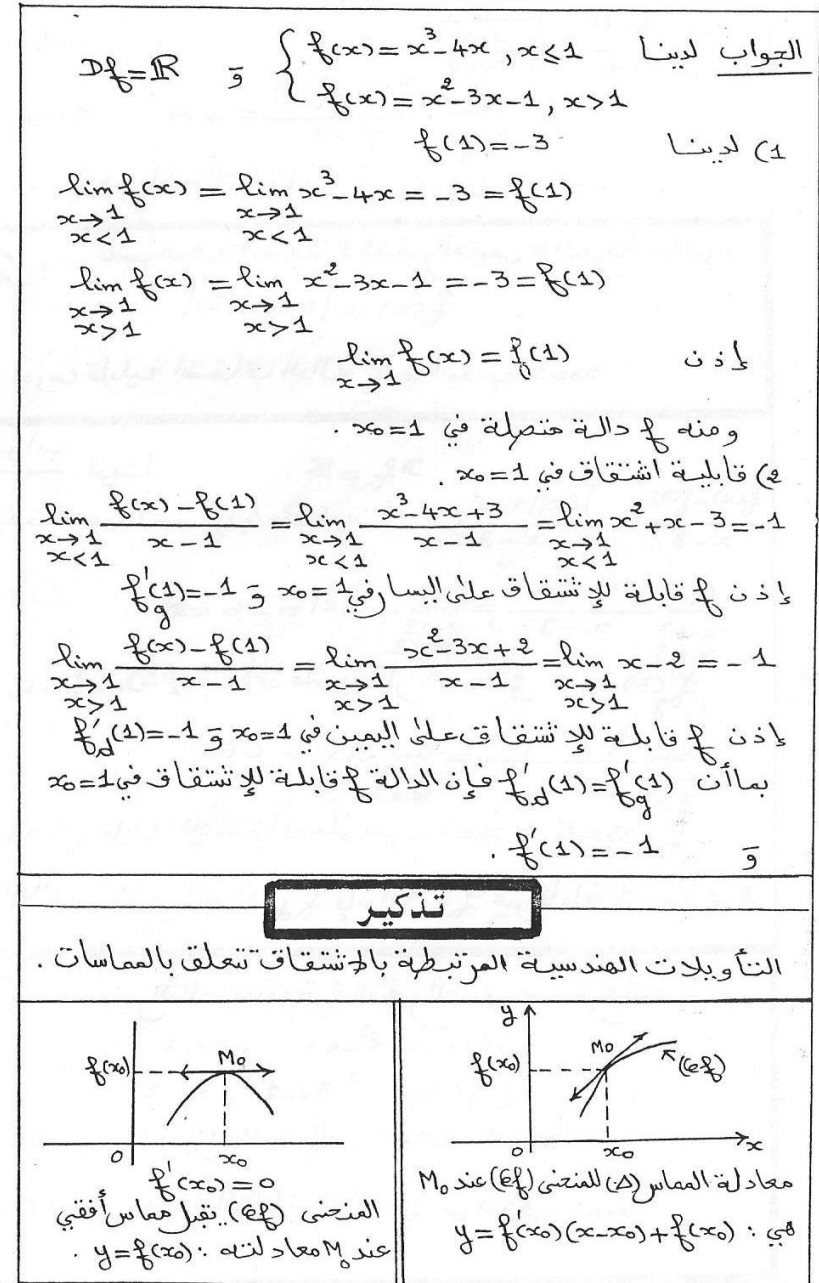 الجواب لدينا { f(x)=x³-4x , x≤1 وَ Df=ℝ
f(x)=x²-3x-1 , x>1
1) لدينا f(1)=-3
lim f(x) = lim x³-4x = -3 = f(1)
x→1 x→1
x<1 x<1
lim f(x) = lim x²-3x-1 = -3 = f(1)
x→1 x→1
x>1 x>1
إذن lim f(x) = f(1)
x→1
ومنه f دالة متصلة في x₀=1 .
2) قابلية اشتقاق في x₀=1 .
lim (f(x)-f(1))/(x-1) = lim (x³-4x+3)/(x-1) = lim x²+x-3 = -1
x→1 x→1 x→1
x<1 x<1 x<1
إذن f قابلة للإشتقاق على اليسار في x₀=1 وَ f'g(1)=-1
lim (f(x)-f(1))/(x-1) = lim (x²-3x+2)/(x-1) = lim x-2 = -1
x→1 x→1 x→1
x>1 x>1 x>1
إذن f قابلة للإشتقاق على اليمين في x₀=1 وَ f'd(1)=-1
بما أن f'd(1)=f'g(1) فإن الدالة f قابلة للإشتقاق في x₀=1
وَ f'(1)=-1 .
تذكير
التأويلات الهندسية المرتبطة بالاشتقاق تتعلق بالمماسات .
y
M₀
(Cf)
f(x₀)
0 x₀ x
معادلة المماس (Δ) للمنحنى (Cf) عند M₀
هي : y=f'(x₀)(x-x₀)+f(x₀)
M₀
f(x₀)
0 x₀
f'(x₀)=0
المنحنى (Cf) يقبل مماس أفقي
عند M₀ معادلته : y=f(x₀) .